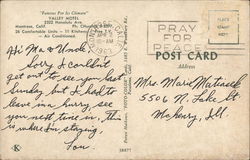 "Famous For Its Climate"
VALLEY MOTEL
2352 Honolulu Ave.
Montrose, Calif.
24 Comfortable Units — 11 Kitchens
Air Conditioned
PRAY
FOR
PEACE
POST CARD
Address
Hi Ma & Uncle,
Sorry I couldn't
get out to see you last
Sunday but I had to
leave in a hurry, see
you next time in, this
is where I'm staying
Tom.
Mrs. Marie Matiasek
5506 N. Lake St
McHenry, Ill.
K